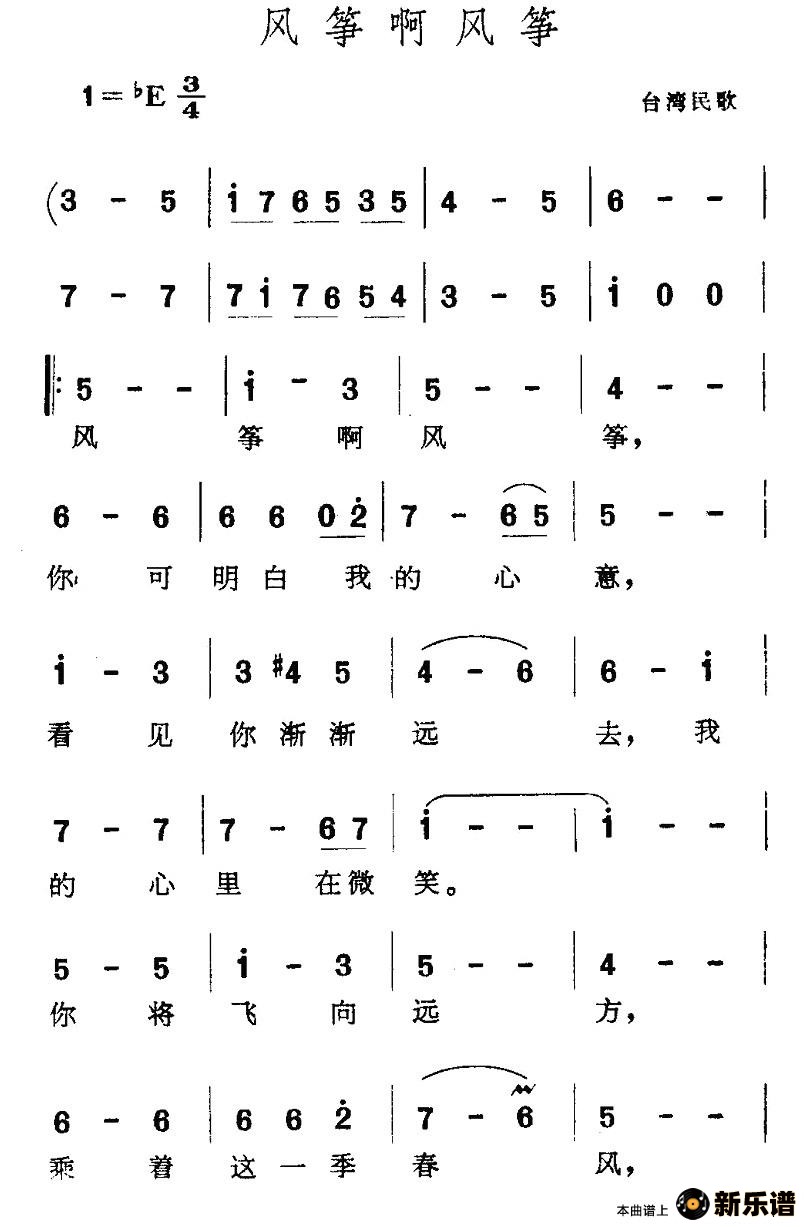 风筝啊风筝
1=♭E 3/4
台湾民歌
(3 - 5 | i̇ 7 6 5 3 5 | 4 - 5 | 6 - - |
7 - 7 | 7 i̇ 7 6 5 4 | 3 - 5 | i̇ 0 0 |
‖: 5 - - | i̇ - 3 | 5 - - | 4 - - |
风 筝 啊 风 筝,
6 - 6 | 6 6 0 2̇ | 7 - 6 5 | 5 - - |
你 可 明 白 我 的 心 意,
i̇ - 3 | 3 #4 5 | 4 - 6 | 6 - i̇ |
看 见 你 渐 渐 远 去, 我
7 - 7 | 7 - 6 7 | i̇ - - | i̇ - - |
的 心 里 在 微 笑。
5 - 5 | i̇ - 3 | 5 - - | 4 - - |
你 将 飞 向 远 方,
6 - 6 | 6 6 2̇ | 7 - 6 | 5 - - |
乘 着 这 一 季 春 风,
本曲谱上 新乐谱